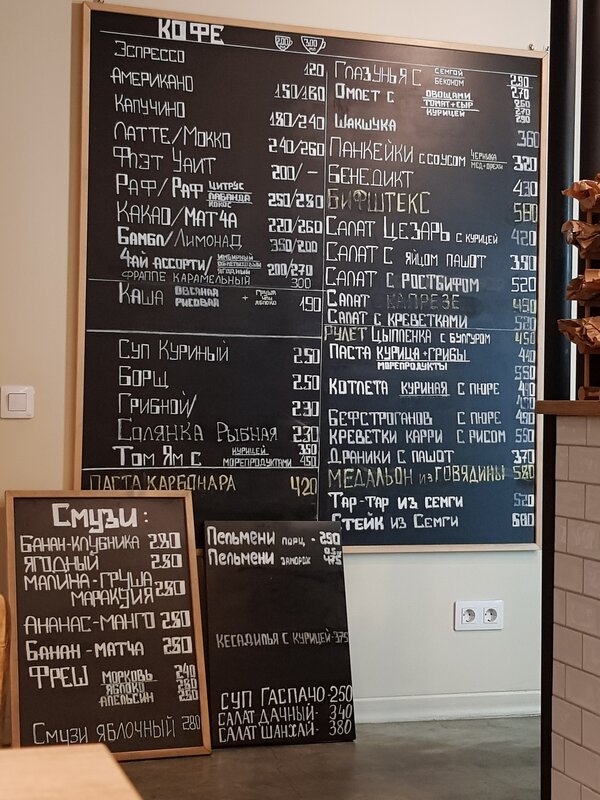 КОФЕ 200 300
Эспрессо 120
Американо 150/180
Капучино 180/240
Латте/Мокко 240/260
Флэт Уайт 200/-
Раф/Раф цитрус лаванда кокос 250/280
Какао/Матча 220/260
Бамбл/Лимонад 350/200
Чай ассорти/ имбирный облепиховый ягодный 200/270
Фраппе карамельный 300
Каша овсяная рисовая + груша или яблоко 190
Суп Куриный 250
Борщ 250
Грибной/ 230
Солянка Рыбная 230
Том Ям с курицей 350
морепродуктами 450
Паста карбонара 420
Глазунья с семгой беконом 290
Омлет с овощами 270
томат+сыр 260
курицей 270
290
Шакшука 360
Панкейки с соусом черника мед+орехи 320
Бенедикт 430
Бифштекс 580
Салат Цезарь с курицей 420
Салат с яйцом пашот 390
Салат с ростбифом 520
Салат Капрезе 450
Салат с креветками 520
Рулет цыпленка с булгуром 450
Паста курица+грибы 440
морепродукты 550
Котлета куриная с пюре
Бефстроганов с пюре 490
Креветки карри с рисом 550
Драники с пашот 370
Медальон из говядины 580
Тар-тар из семги 520
Стейк из Семги 680
Смузи:
Банан-клубника 280
Ягодный 280
Малина-груша
маракуйя 280
Ананас-манго 280
Банан-матча 280
Фреш морковь 240
яблоко 260
апельсин 290
Смузи яблочный 280
Пельмени порц. - 290
Пельмени заморож 0.5кг 475
Кесадилья с курицей-375
Суп гаспачо-250
Салат дачный- 340
Салат шанхай- 380